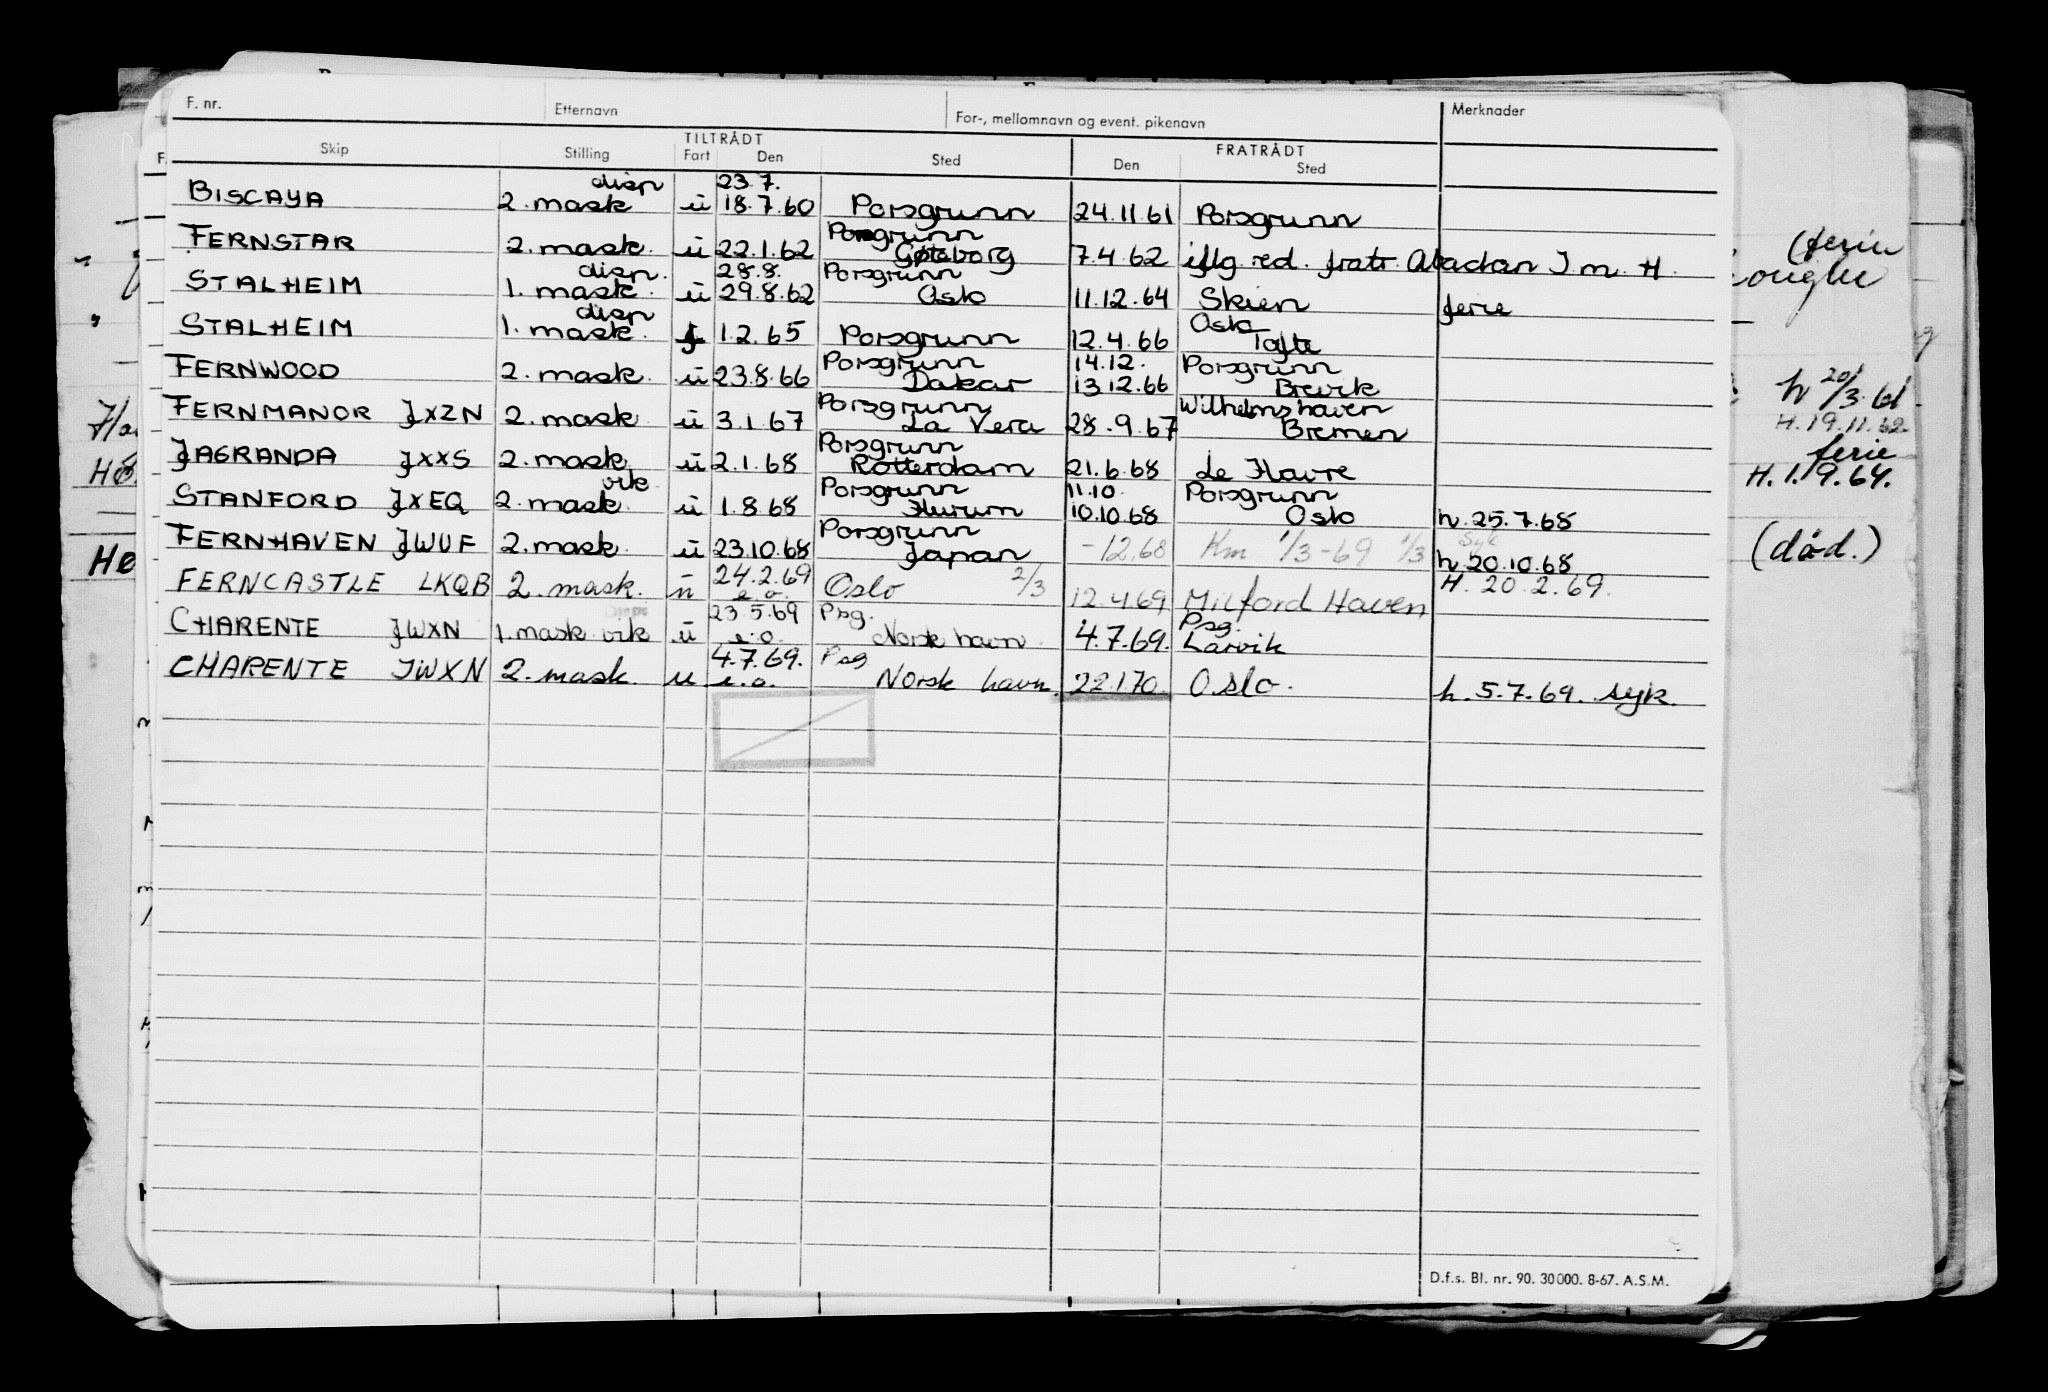 F. nr. Etternavn For-, mellomnavn og event. pikenavn Merknader
TILTRÅDT FRATRÅDT
Skip Stilling Fart Den Sted Den Sted
disp 23.7.
BISCAYA 2. mask ü 18.7.60 Porsgrunn 24.11.61 Porsgrunn
Porsgrunn
FERNSTAR 2. mask. ü 22.1.62 Gøteborg 7.4.62 iflg red. fratr. Abadan I m. H.
disp. 28.8. Porsgrunn
STALHEIM 1. mask. ü 29.8.62 Oslo 11.12.64 Skien ferie
disp Oslo
STALHEIM 1. mask. f 1.2.65 Porsgrunn 12.4.66 Tofte
Porsgrunn 14.12. Porsgrunn
FERNWOOD 2. mask. ü 23.8.66 Dakar 13.12.66 Brevik
Porsgrunn Wilhelmshaven
FERNMANOR JXZN 2. mask ü 3.1.67 La Vera 28.9.67 Bremen
Porsgrunn
JAGRANDA JXXS 2. mask ü 2.1.68 Rotterdam 21.6.68 Le Havre
vik Porsgrunn 11.10. Porsgrunn
STANFORD JXEQ 2. mask ü 1.8.68 Hurum 10.10.68 Oslo h. 25.7.68
Porsgrunn Syk
FERNHAVEN JWUF 2. mask. ü 23.10.68 Japan -12.68 Km 1/3-69 1/3 h. 20.10.68
24.2.69
FERNCASTLE LKQB 2. mask. ü e.o. Oslo 2/3 12.4.69 Milford Haven H. 20.2.69.
23.5.69 Psg. Psg.
CHARENTE JWXN 1. mask vik ü e.o. Norsk havn 4.7.69. Larvik
4.7.69. Psg
CHARENTE JWXN 2. mask. u e.o. Norsk havn. 22.1.70. Oslo. h. 5.7.69. syk.
(ferie
h 20/3.61
H. 19.11.62
ferie
H. 1.9.64.
(død.)
D.f.s. Bl. nr. 90. 30000. 8-67. A.S.M.